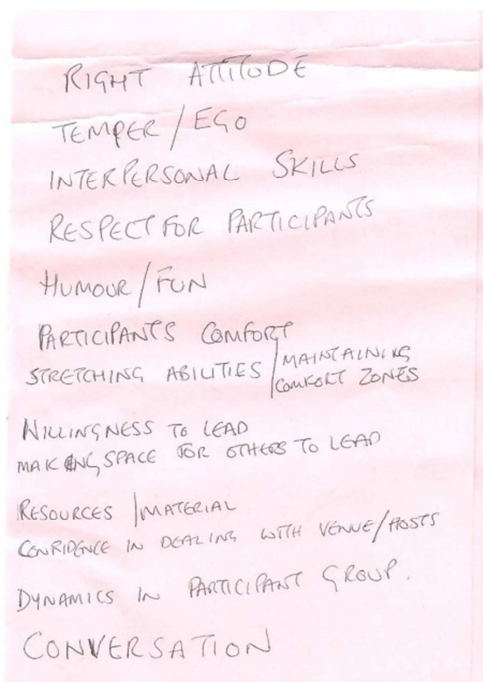 RIGHT ATTITUDE
TEMPER / EGO
INTERPERSONAL SKILLS
RESPECT FOR PARTICIPANTS
HUMOUR / FUN
PARTICIPANTS COMFORT
STRETCHING ABILITIES / MAINTAINING COMFORT ZONES
WILLINGNESS TO LEAD
MAKING SPACE FOR OTHERS TO LEAD
RESOURCES / MATERIAL
CONFIDENCE IN DEALING WITH VENUE/HOSTS
DYNAMICS IN PARTICIPANT GROUP.
CONVERSATION